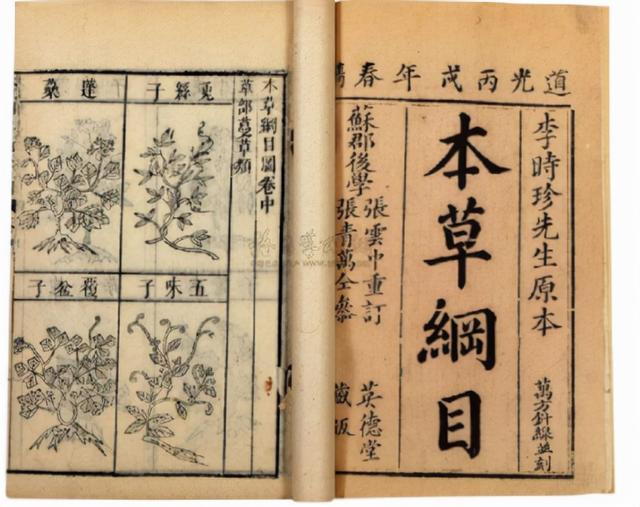 道光丙戌年春鐫
李時珍先生原本
萬方針線並刻
本草綱目
張雲中重訂
蘇郡後學
張青萬仝參
英德堂
本草綱目圖卷中
草部蔓草類
兎絲子
蓬
五味子
覆盆子